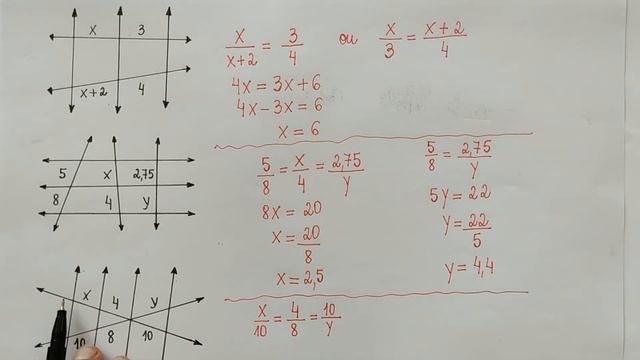 x 3
x+2 4
x/x+2 = 3/4 ou x/3 = x+2/4
4x = 3x+6
4x-3x = 6
x = 6
5 x 2,75
8 4 y
5/8 = x/4 = 2,75/y
8x = 20
x = 20/8
x = 2,5
5/8 = 2,75/y
5y = 22
y = 22/5
y = 4,4
x 4 y
10 8 10
x/10 = 4/8 = 10/y